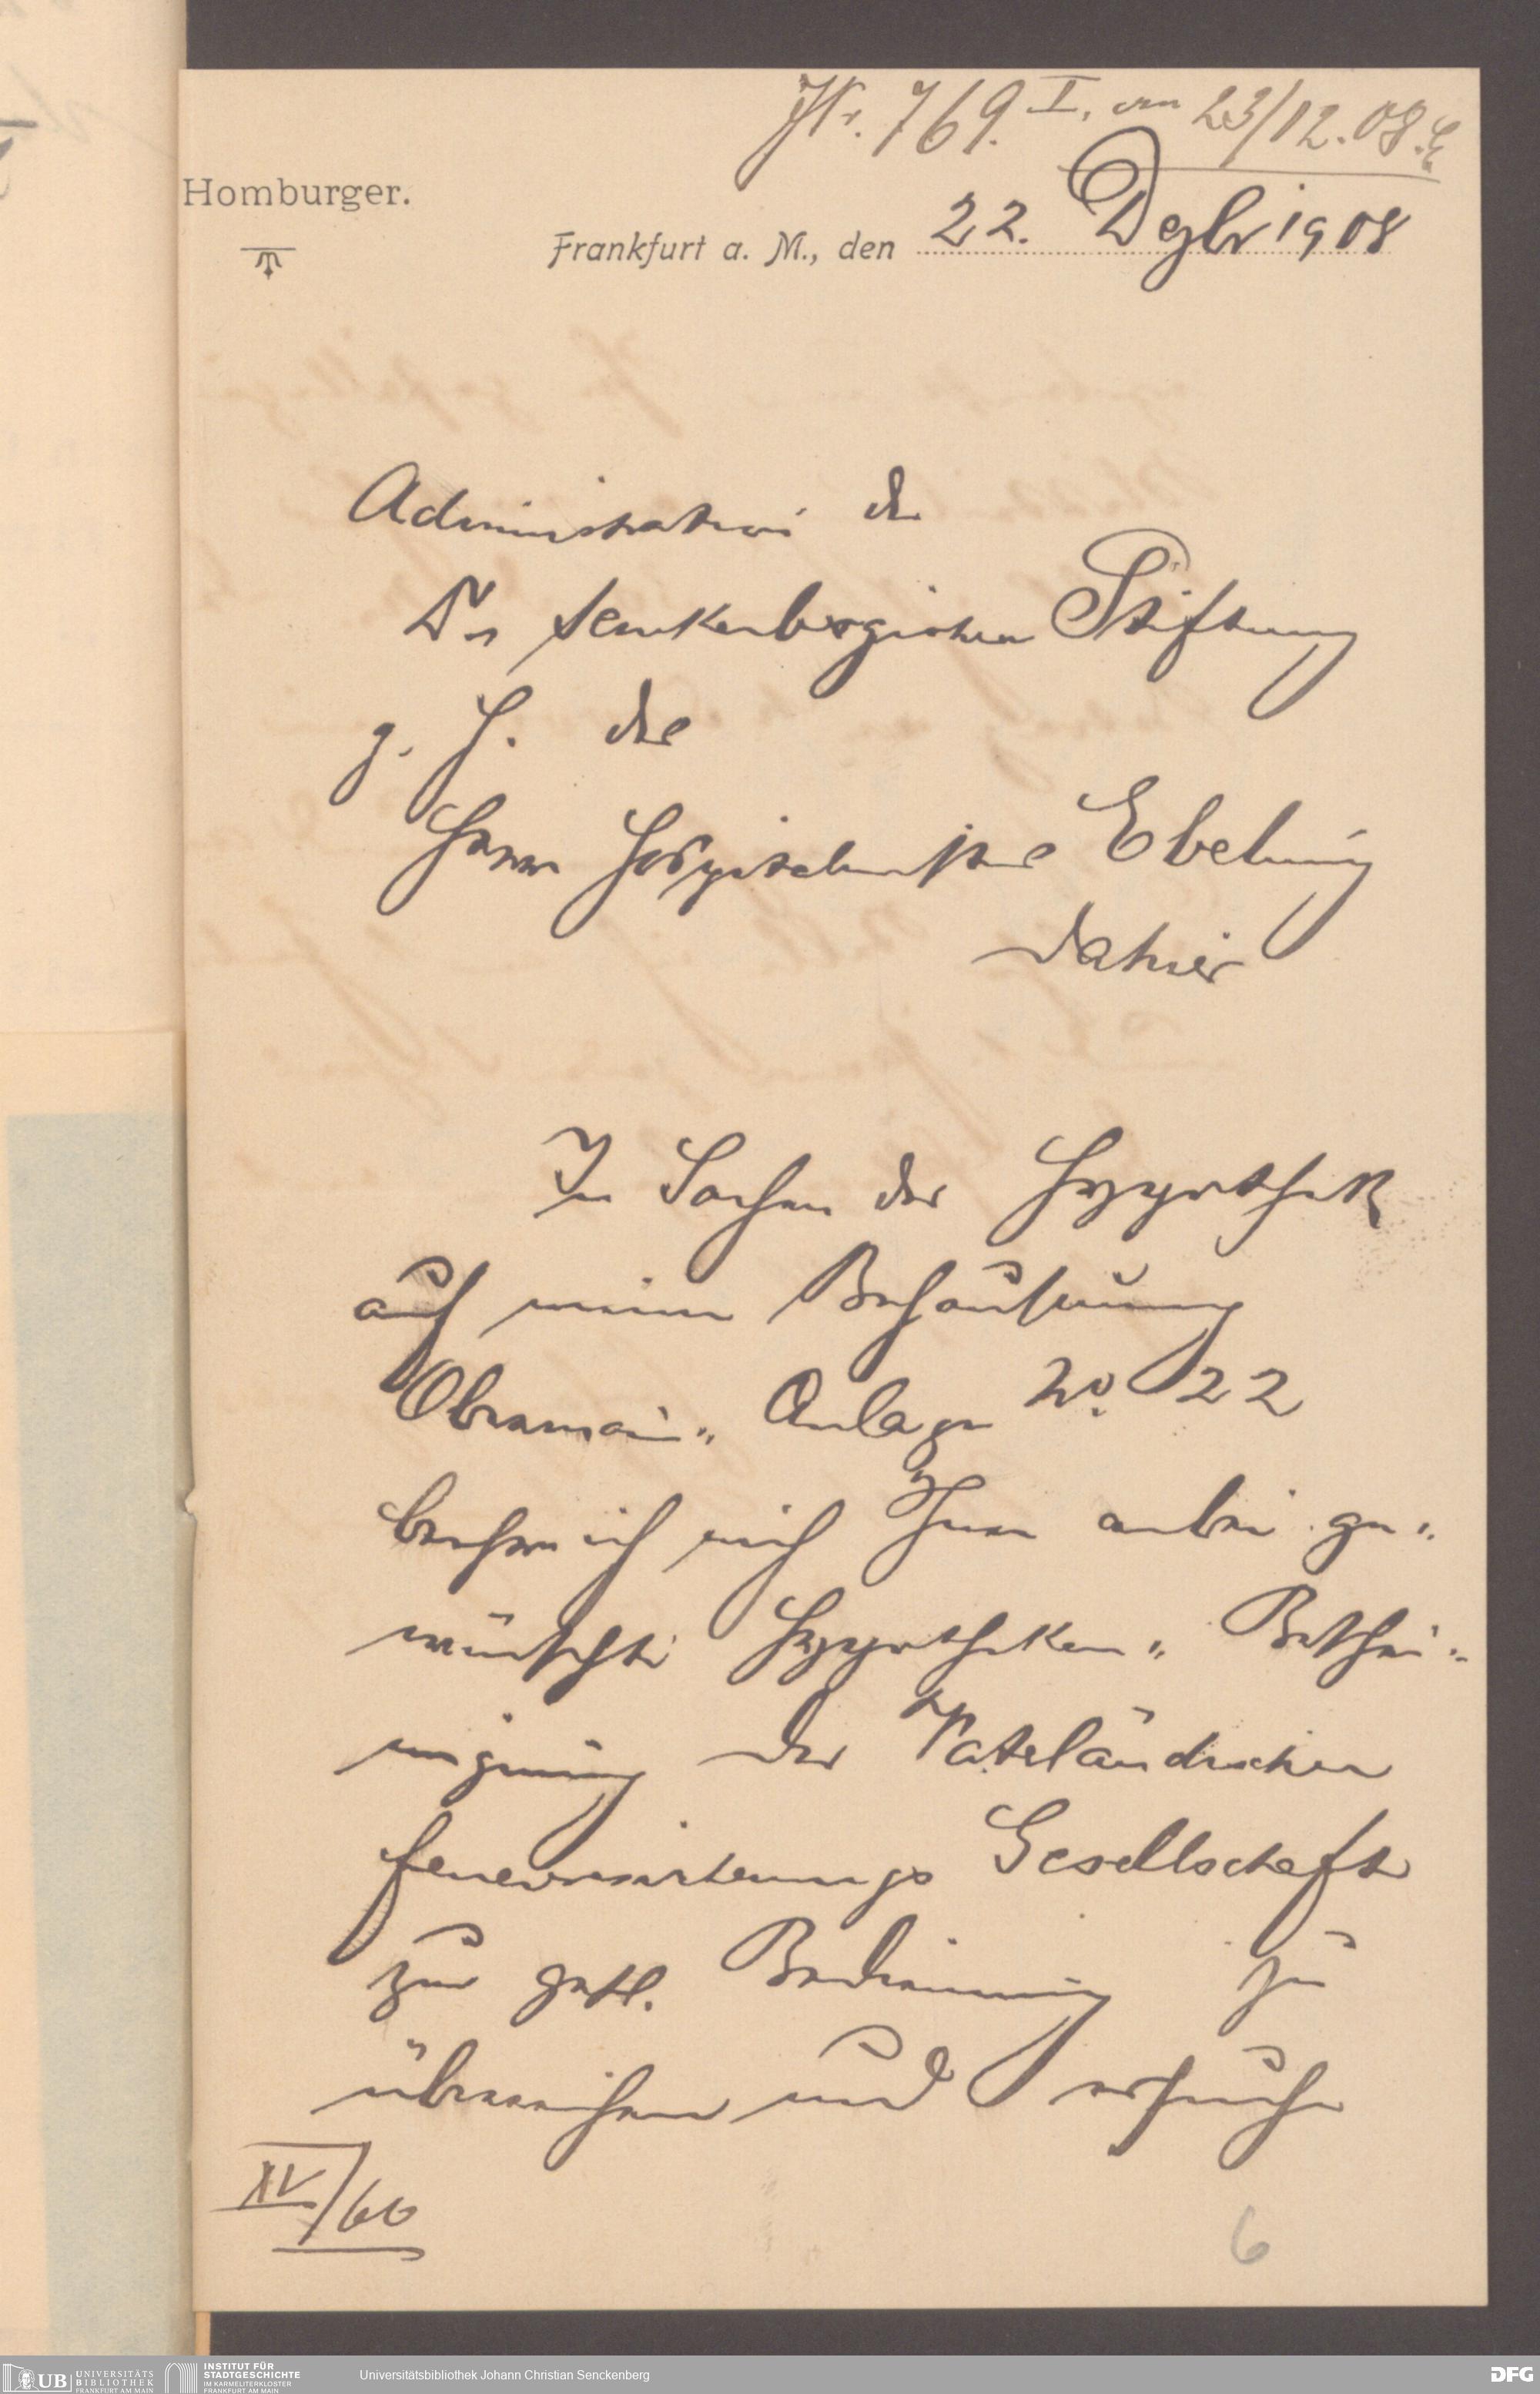 Nr. 769. I, am 23/12.08. E
Homburger.
Frankfurt a. M., den 22. Dezbr 1908
Administration der
Dr Senkenbergischen Stiftung
z. H. des
Herrn Hospitalmstrs Ebeling
dahier
In Sachen der Hypothek
auf meine Behausung
Obermain- Anlage No. 22
beehre ich mich Ihnen anbei ge-
wünschte Hypotheken- Beschei-
nigung der Vaterländischen
Feuerversicherungs Gesellschaft
zur gefl. Bedienung zu
überreichen und ersuche
XV/66
6
UB UNIVERSITÄTS
BIBLIOTHEK
FRANKFURT AM MAIN
INSTITUT FÜR
STADTGESCHICHTE
IM KARMELITERKLOSTER
FRANKFURT AM MAIN
Universitätsbibliothek Johann Christian Senckenberg
DFG